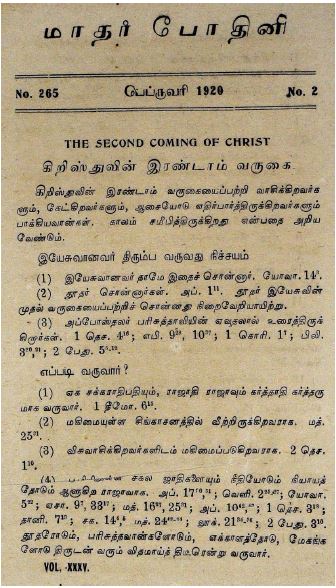 மாதர் போதினி
No. 265 பெப்ருவரி 1920 No. 2
THE SECOND COMING OF CHRIST
கிறிஸ்துவின் இரண்டாம் வருகை
கிறிஸ்துவின் இரண்டாம் வருகையைப்பற்றி வாசிக்கிறவர்க
ளும், கேட்கிறவர்களும், ஆசையோடு எதிர்பார்த்திருக்கிறவர்களும்
பாக்கியவான்கள். காலம் சமீபித்திருக்கிறது என்பதை அறிய
வேண்டும்.
இயேசுவானவர் திரும்ப வருவது நிச்சயம்
(1) இயேசுவானவர் தாமே இதைச் சொன்னார். யோவா. 14³.
(2) தூதர் சொன்னார்கள். அப். 1¹¹. தூதர் இயேசுவின்
முதல் வருகையைப்பற்றிச் சொன்னது நிறைவேறியாயிற்று.
(3) அப்போஸ்தலர் பரிசுத்தாவியின் ஏவுதலால் உரைத்திருக்
கிறார்கள். 1 தெச. 4¹⁶; எபி. 9²⁸, 10³⁷; 1 கொரி. 1⁷; பிலி.
3²⁰,²¹; 2 பேது.
எப்படி வருவார்?
(1) ஏக சக்ராதிபதியும், ராஜாதி ராஜாவும் கர்த்தாதி கர்த்தரு
மாக வருவார். 1 தீமோ. 6¹⁵.
(2) மகிமையுள்ள சிங்காசனத்தில் வீற்றிருக்கிறவராக. மத்.
25³¹.
(3) விசுவாசிக்கிறவர்களிடம் மகிமைப்படுகிறவராக. 2 தெச.
1¹⁰.
சகல ஜாதிகளையும் நீதியோடும் நியாயத்
தோடும் ஆளுகிற ராஜாவாக. அப். 17³⁰,³¹; வெளி. யோவா.
5²²; ஏசா. 9⁷, 33¹⁷; மத். 16²⁷, 25³¹; அப். 10⁴²; 1 தெச. 3¹³;
தானி. 7¹³; சக. மத். லூக். 2 பேது. 3¹⁰.
தூதரோடும், பரிசுத்தவான்களோடும், எக்காளத்தோடு, மேகங்க
ளோடு திருடன் வரும் விதமாய்த் திடீரென்று வருவார்.
VOL.-XXXV.